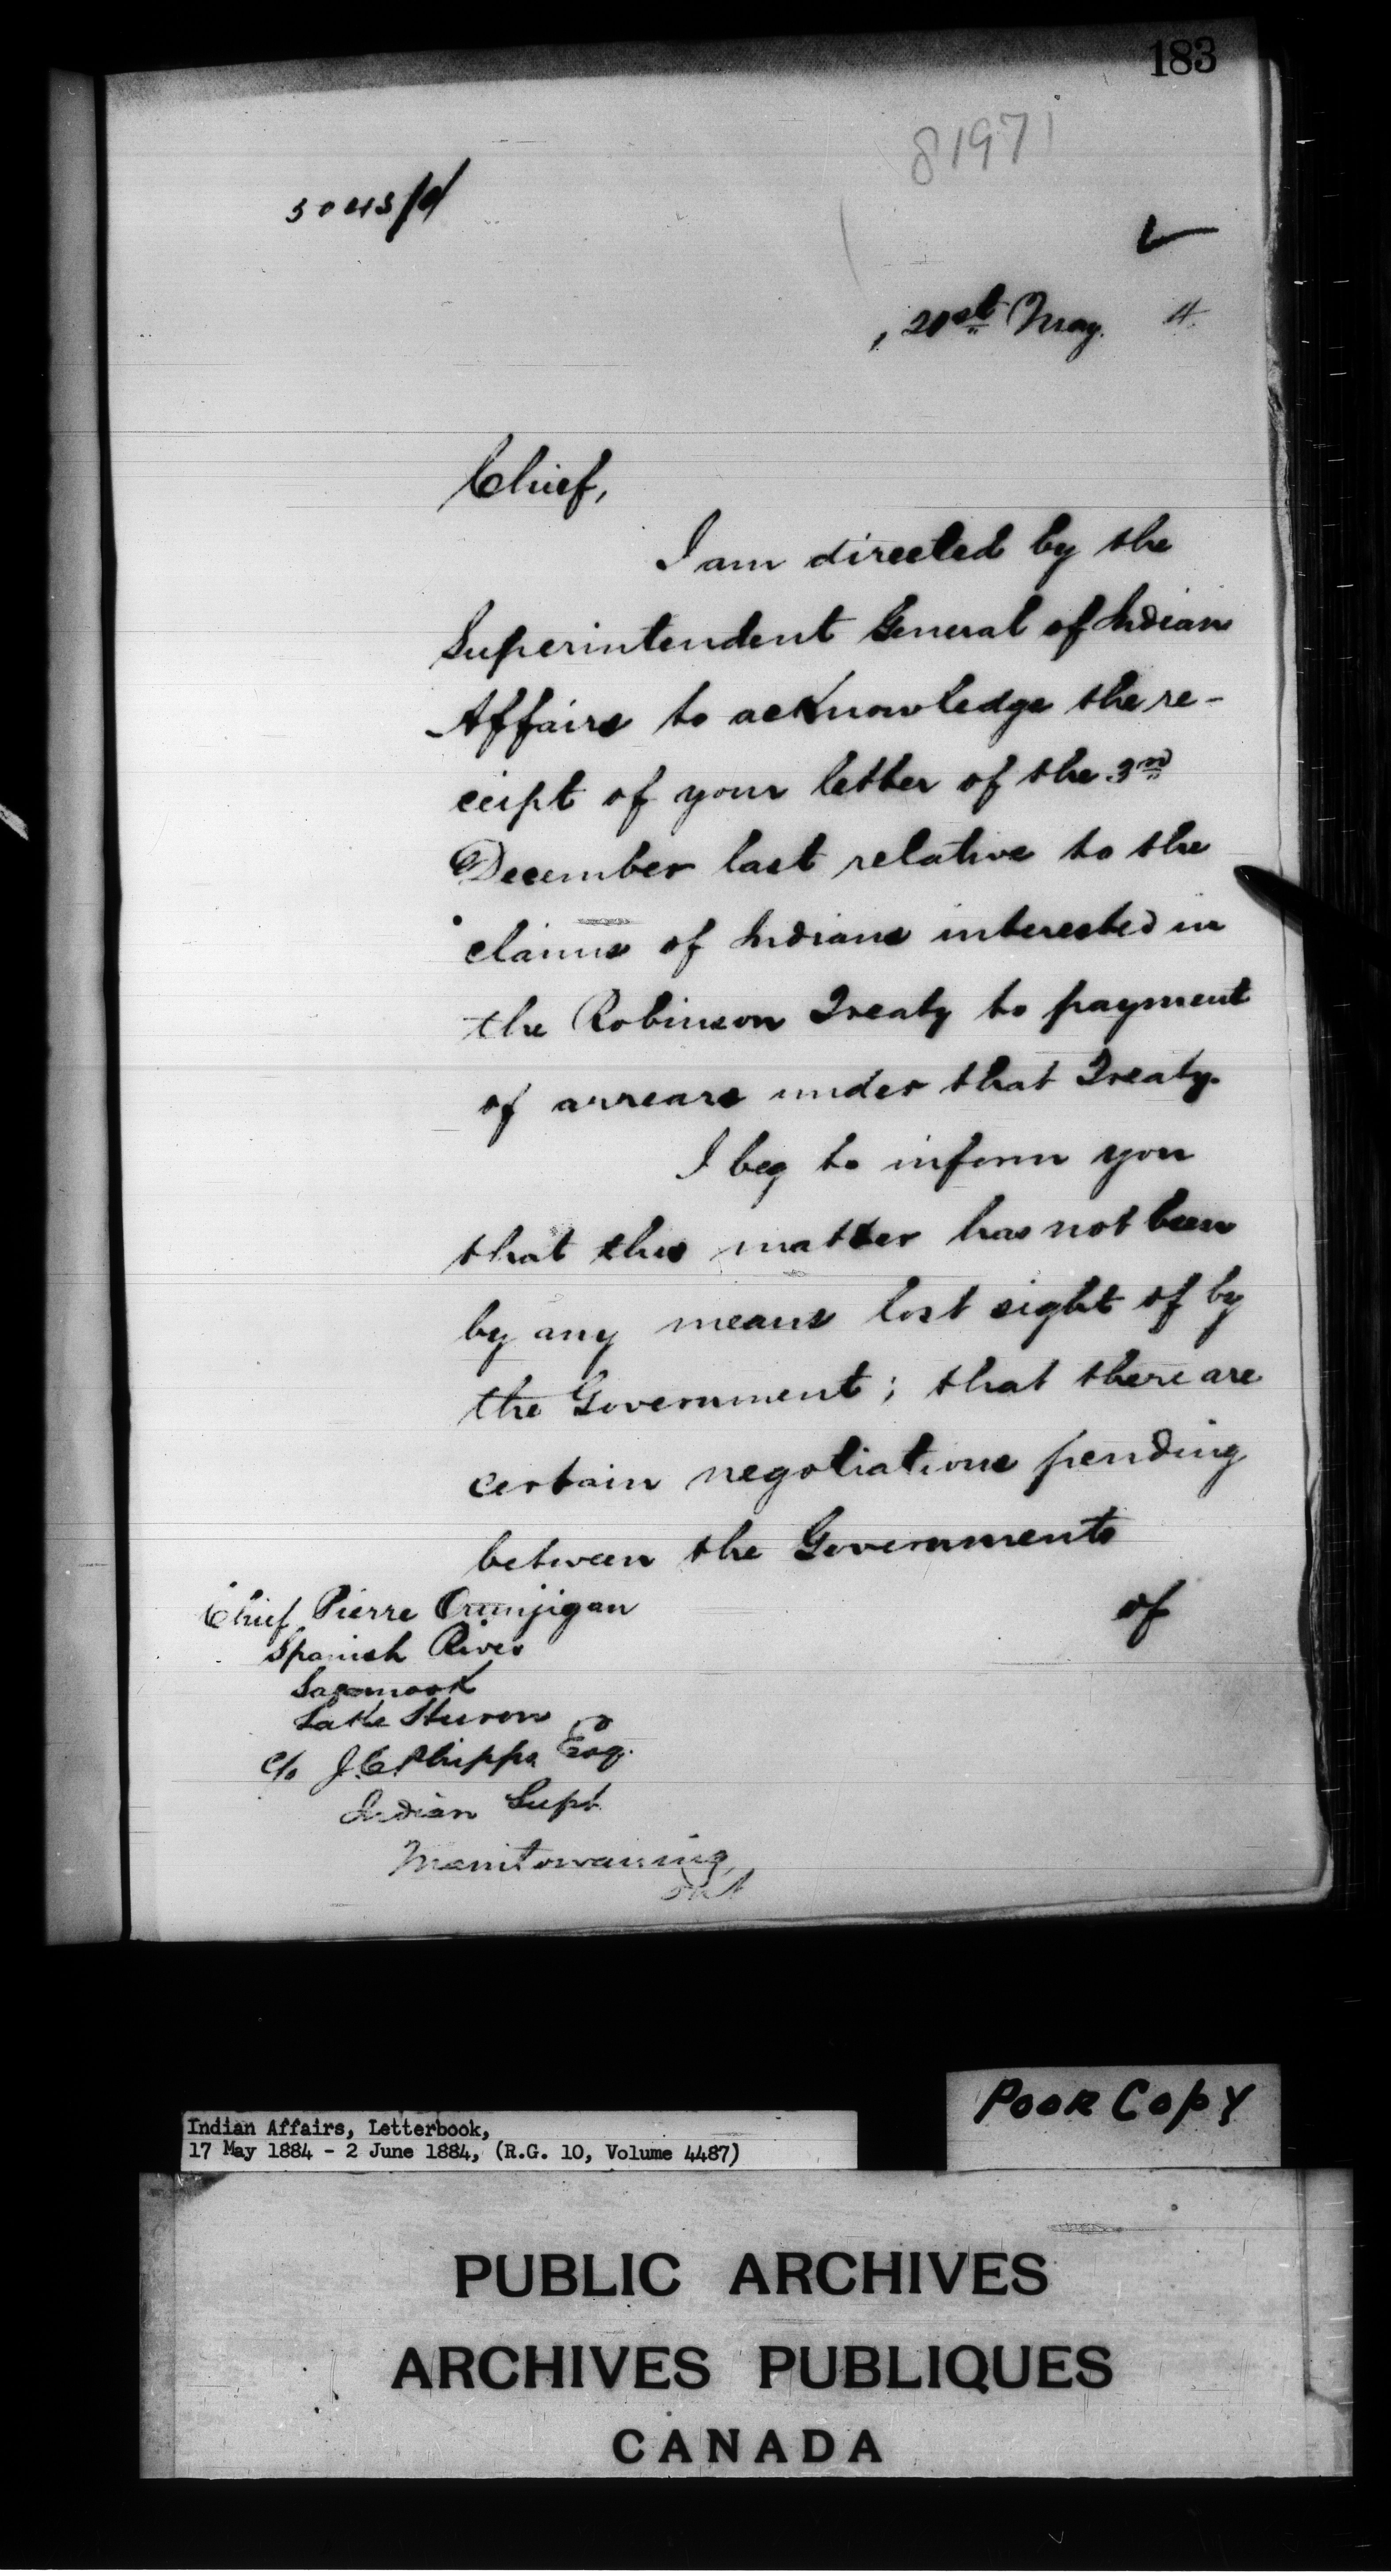 183
81971
, 21st May. 4
Chief,
I am directed by the
Superintendent General of Indian
Affairs to acknowledge the re-
ceipt of your letter of the 3rd
December last relative to the
claims of Indians interested in
the Robinson Treaty to payment
of arrears under that Treaty.
I beg to inform you
that this matter has not been
by any means lost sight of by
the Government; that there are
certain negotiations pending
between the Governments
of
Chief Pierre
Spanish River
Lake Huron
c/o J.C. Phipps Esq.
Indian Supt
Manitowaning
Ont
Poor Copy
Indian Affairs, Letterbook,
17 May 1884 - 2 June 1884, (R.G. 10, Volume 4487)
PUBLIC ARCHIVES
ARCHIVES PUBLIQUES
CANADA